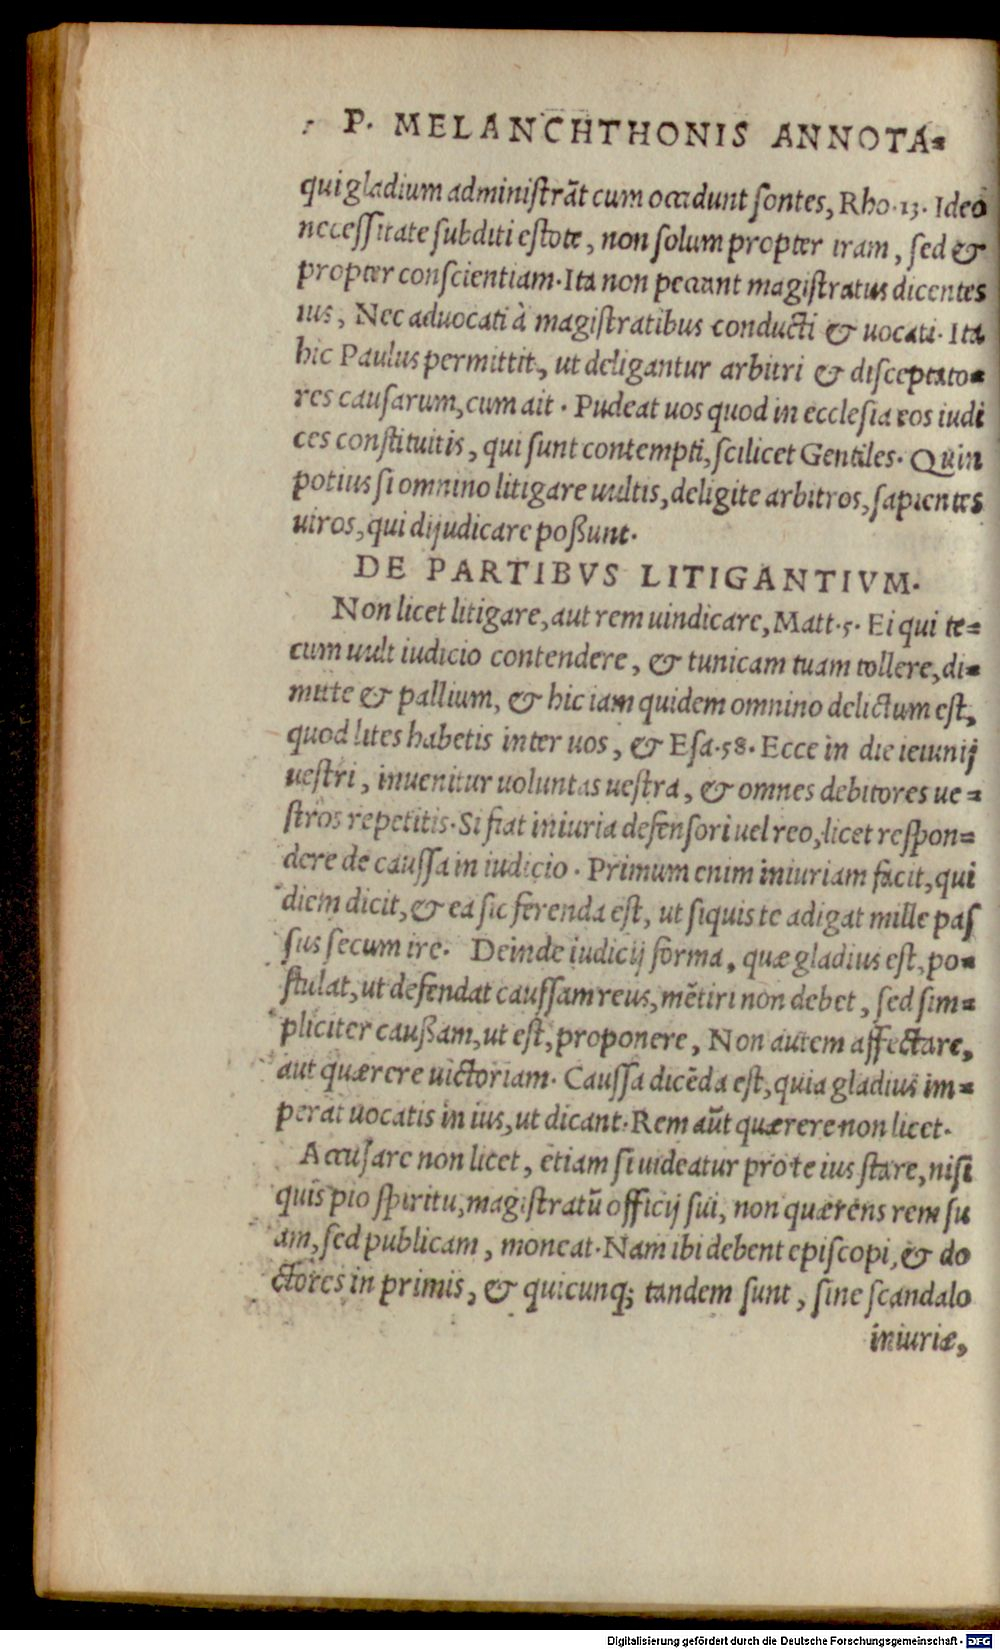 P. MELANCHTHONIS ANNOTA=
qui gladium administrãt cum occidunt sontes, Rho. 13. Ideo
necessitate subditi estote, non solum propter iram, sed &
propter conscientiam. Ita non peccant magistratus dicentes
ius, Nec aduocati à magistratibus conducti & uocati. Ita
hic Paulus permittit, ut deligantur arbitri & disceptato=
res causarum, cum ait. Pudeat uos quod in ecclesia eos iudi
ces constituitis, qui sunt contempti, scilicet Gentiles. Quin
potius si omnino litigare uultis, deligite arbitros, sapientes
uiros, qui dijudicare poßunt.
DE PARTIBVS LITIGANTIVM.
Non licet litigare, aut rem uindicare, Matt. 5. Ei qui te=
cum uult iudicio contendere, & tunicam tuam tollere, di=
mitte & pallium, & hic iam quidem omnino delictum est,
quod lites habetis inter uos, & Esa. 58. Ecce in die ieiunij
uestri, inuenitur uoluntas uestra, & omnes debitores ue=
stros repetitis. Si fiat iniuria defensori uel reo, licet respon=
dere de caussa in iudicio. Primum enim iniuriam facit, qui
diem dicit, & ea sic ferenda est, ut siquis te adigat mille pas
sus secum ire. Deinde iudicij forma, quæ gladius est, po=
stulat, ut defendat caussam reus, mẽtiri non debet, sed sim=
pliciter caußam, ut est, proponere, Non autem affectare,
aut quærere uictoriam. Caussa dicẽda est, quia gladius im=
perat uocatis in ius, ut dicant. Rem aũt quærere non licet.
Accusare non licet, etiam si uideatur pro te ius stare, nisi
quis pio spiritu, magistratũ officij sui, non quærens rem su
am, sed publicam, moneat. Nam ibi debent episcopi, & do
ctores in primis, & quicunq; tandem sunt, sine scandalo
iniuriæ,
Digitalisierung gefördert durch die Deutsche Forschungsgemeinschaft - DFG